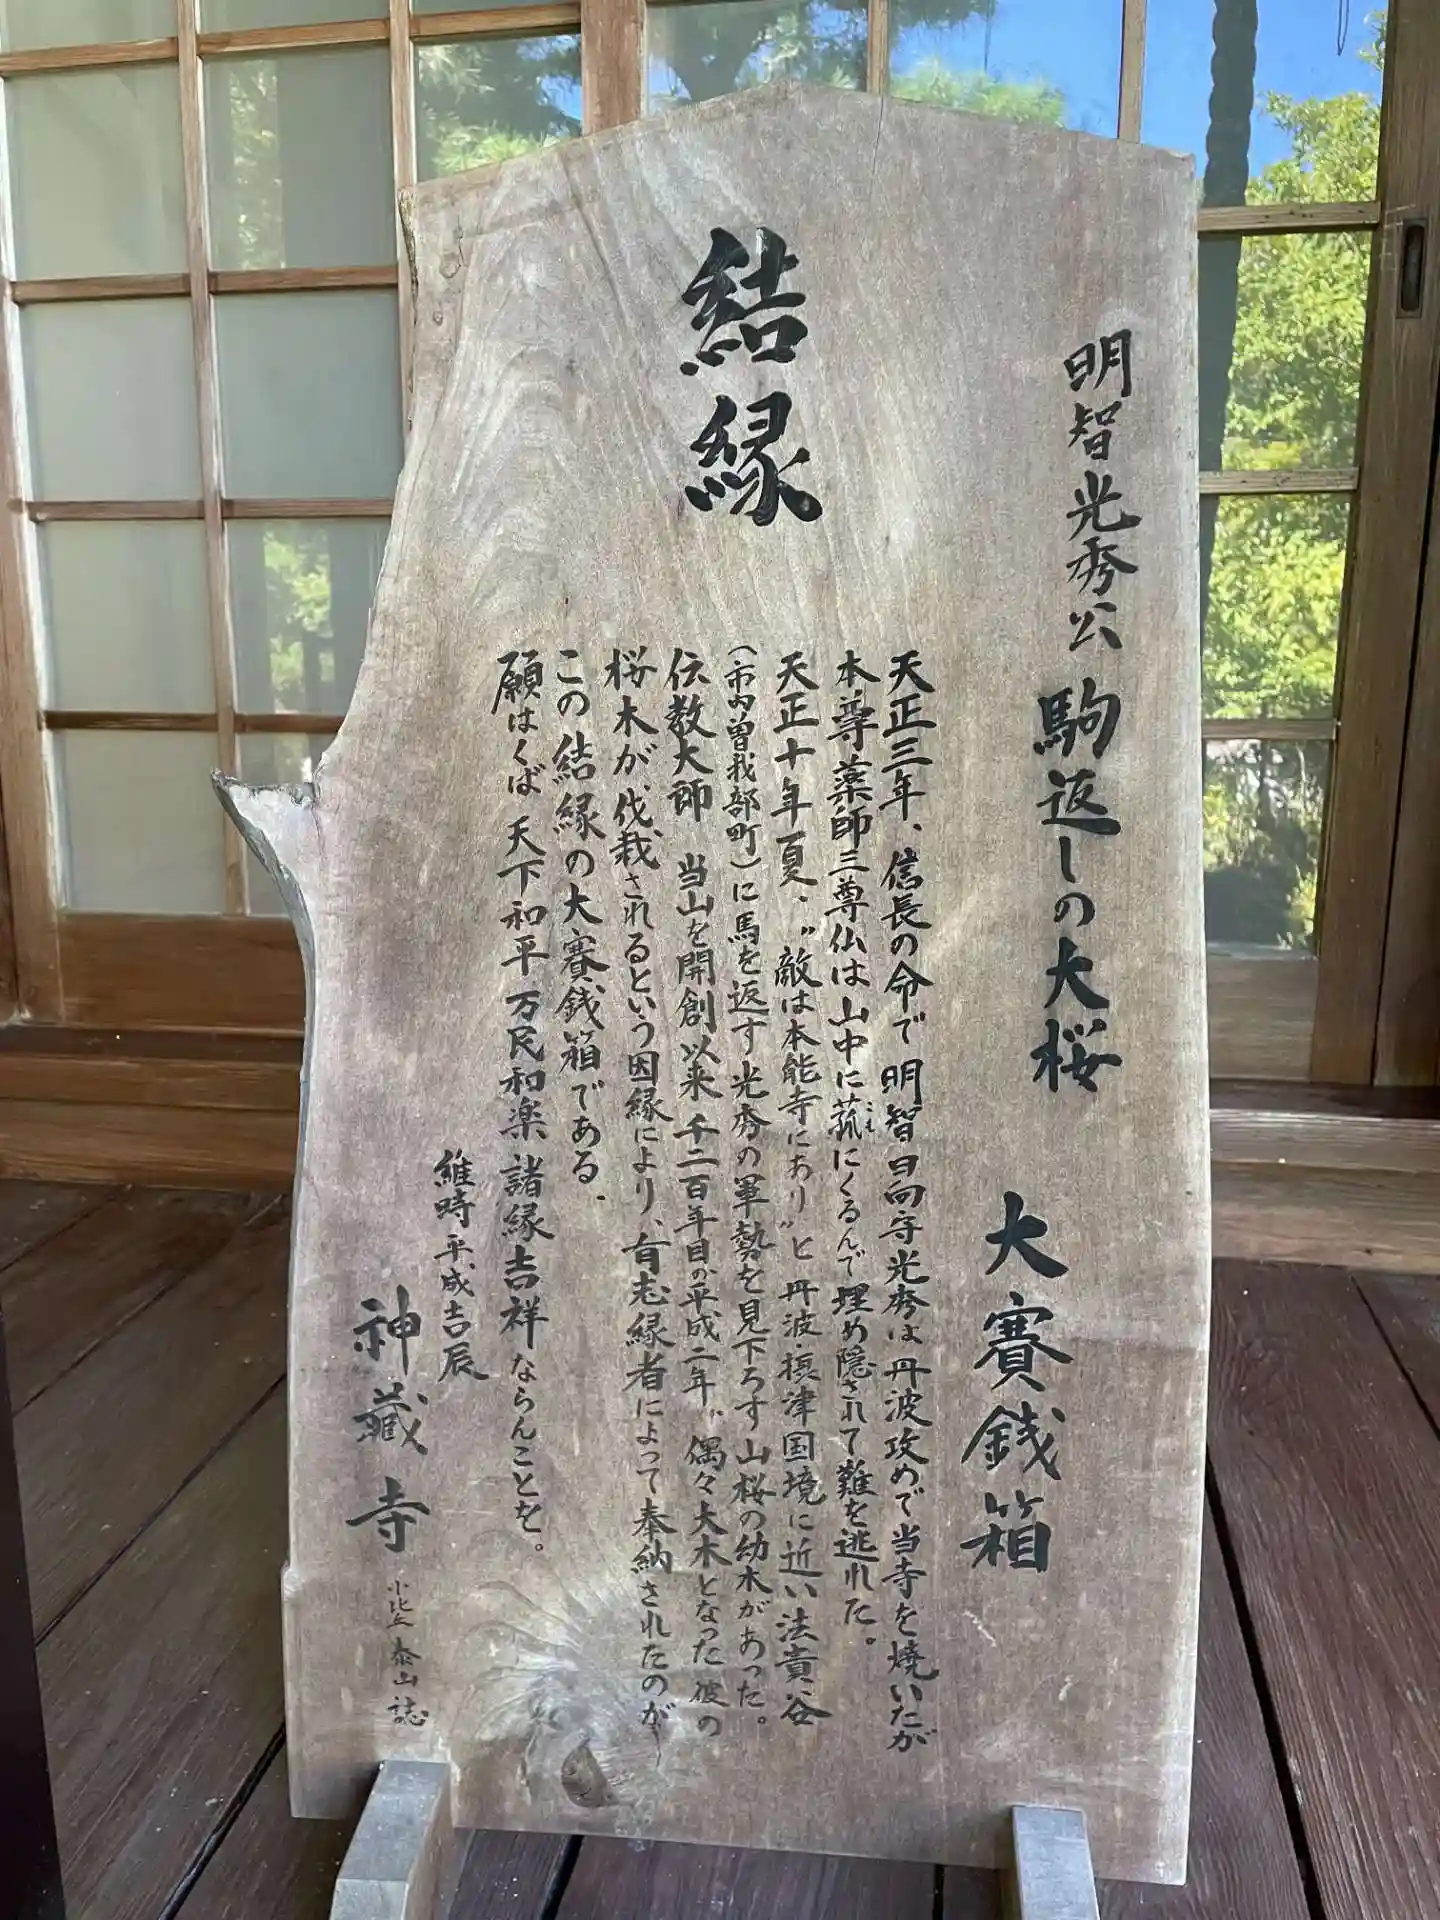 明智光秀公 駒返しの大桜 大賽銭箱
結縁
天正三年、信長の命で 明智日向守光秀は 丹波攻めで当寺を焼いたが
本尊薬師三尊仏は山中に菰にくるんで埋め隠されて難を逃れた。
こも
天正十年夏、〝敵は本能寺にあり〟と 丹波・摂津国境に近い 法貴谷
(市内曽我部町)に馬を返す光秀の軍勢を見下ろす山桜の幼木があった。
伝教大師 当山を開創以来 千二百年目の平成二年〝偶々大木となった彼の
桜木が伐栽されるという因縁により、有志縁者によって奉納されたのが
この結縁の大賽銭箱である.
願はくば 天下和平 万民和楽 諸縁吉祥ならんことを。
維時 平成吉辰
神蔵寺 小比丘 泰山誌